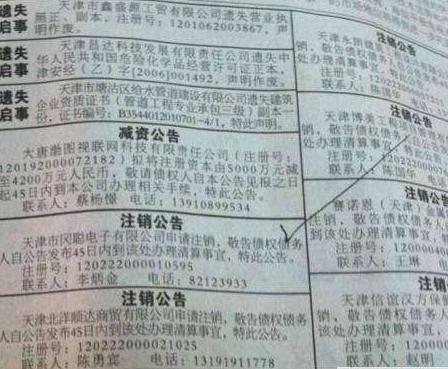 遗失
启事
天津市鑫盛源工贸有限公司遗失营业执
照正、副本，注册号：1201062003867，声
明作废。
遗失
启事
天津昌达科技发展有限责任公司遗失中
华人民共和国危险化学品经营许可证正本，
津安经（乙）字[2006]001492，声明作废。
遗失
启事
天津市塘沽区给水管道建设有限公司遗失建筑
企业资质证书（管道工程专业承包三级）副本一
份，证书编号：B3544012010701-4/1，特此声明。
减资公告
大唐渤图视联网科技有限责任公司（注册号：
120192000072182）拟将注册资本由5000万元减
至4200万元人民币，敬请债权人自本公告见报之日
起45日内到本公司办理相关手续，特此公告。
联系人：蔡杨憬 电话：13910899534
注销公告
天津市冈聪电子有限公司申请注销，敬告债权债务
人自公告发布45日内到该处办理清算事宜，特此公告。
注册号：120222000010595
联系人：李炳金 电话：82123933
注销公告
天津北洋顺达商贸有限公司申请注销，敬告债权债务
人自公告发布45日内到该处办理清算事宜，特此公告。
注册号：120222000021025
联系人：陈勇宾 电话：13191911778
注销公告
销，敬告债权债务
处办理清算事宜
注册号：
联系人：陈国华
注销公告
天津博美工程
联系人：陈国华 电
注销公告
赛诺恩（天津）
注销，敬告债权债务人
到该处办理清算事宜，
注册号：12000040
联系人：王琳 电
注销公告
天津信谊汉方保
销，敬告债权债务人
该处办理清算事宜，
注册号：120000
联系人：赵明